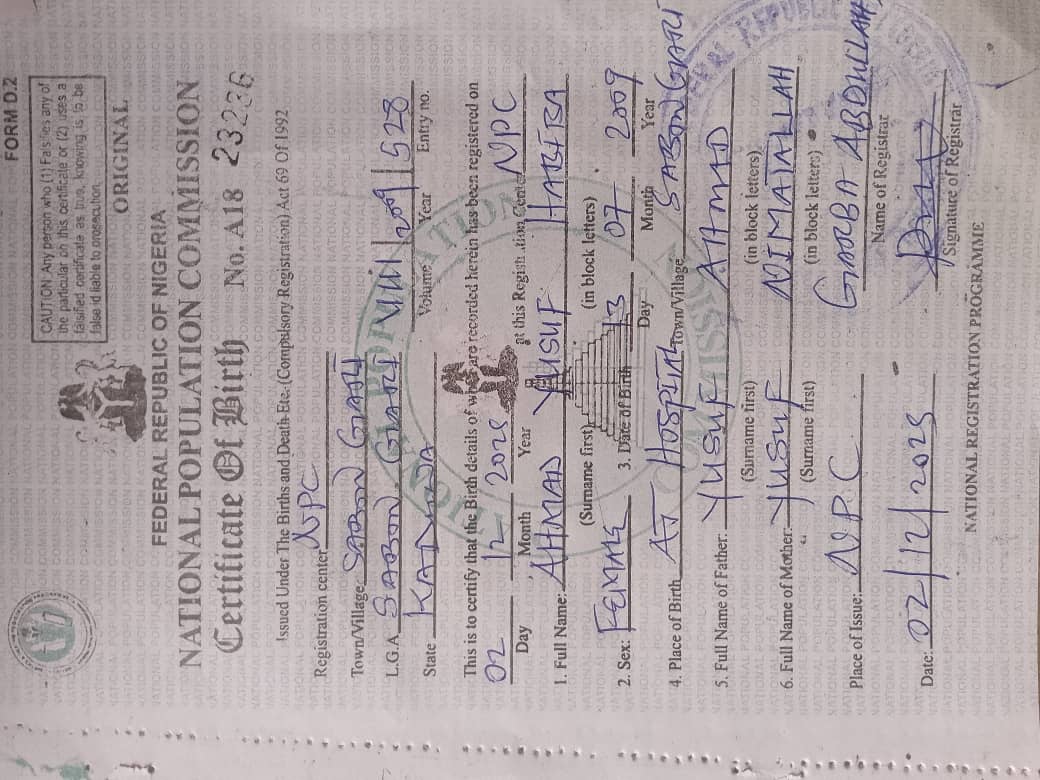 FORM D.2
CAUTION Any person who (1) Falsifies any of
the particular on this certificate or (2) uses a
falsified certificate as true, knowing is to be
false id liable to prosecution
ORIGINAL
FEDERAL REPUBLIC OF NIGERIA
NATIONAL POPULATION COMMISSION
Certificate Of Birth No. A18 23236
Issued Under The Births and Death Etc. (Compulsory Registration) Act 69 Of 1992
Registration center NPC
Town/Village SABON GARI
L.G.A SABON GARI VIIII 2009 528
State KADUNA Volume Year Entry no.
This is to certify that the Birth details of are recorded herein has been registered on
02 12 2025 at this Registration Centre NPC
Day Month Year
1. Full Name: AHMAD YUSUF HABIBA
(Surname first) (in block letters)
2. Sex: FEMALE 3. Date of Birth 13 07 2009
Day Month Year
4. Place of Birth AT HOSPITAL Town/Village SABON GARI
5. Full Name of Father: YUSUF AHMAD
(Surname first) (in block letters)
6. Full Name of Mother: YUSUF NIMATALLAH
(Surname first) (in block letters)
Place of Issue: NPC GARBA ABDULLAHI
Name of Registrar
Date: 02/12/2025
Signature of Registrar
NATIONAL REGISTRATION PROGRAMME